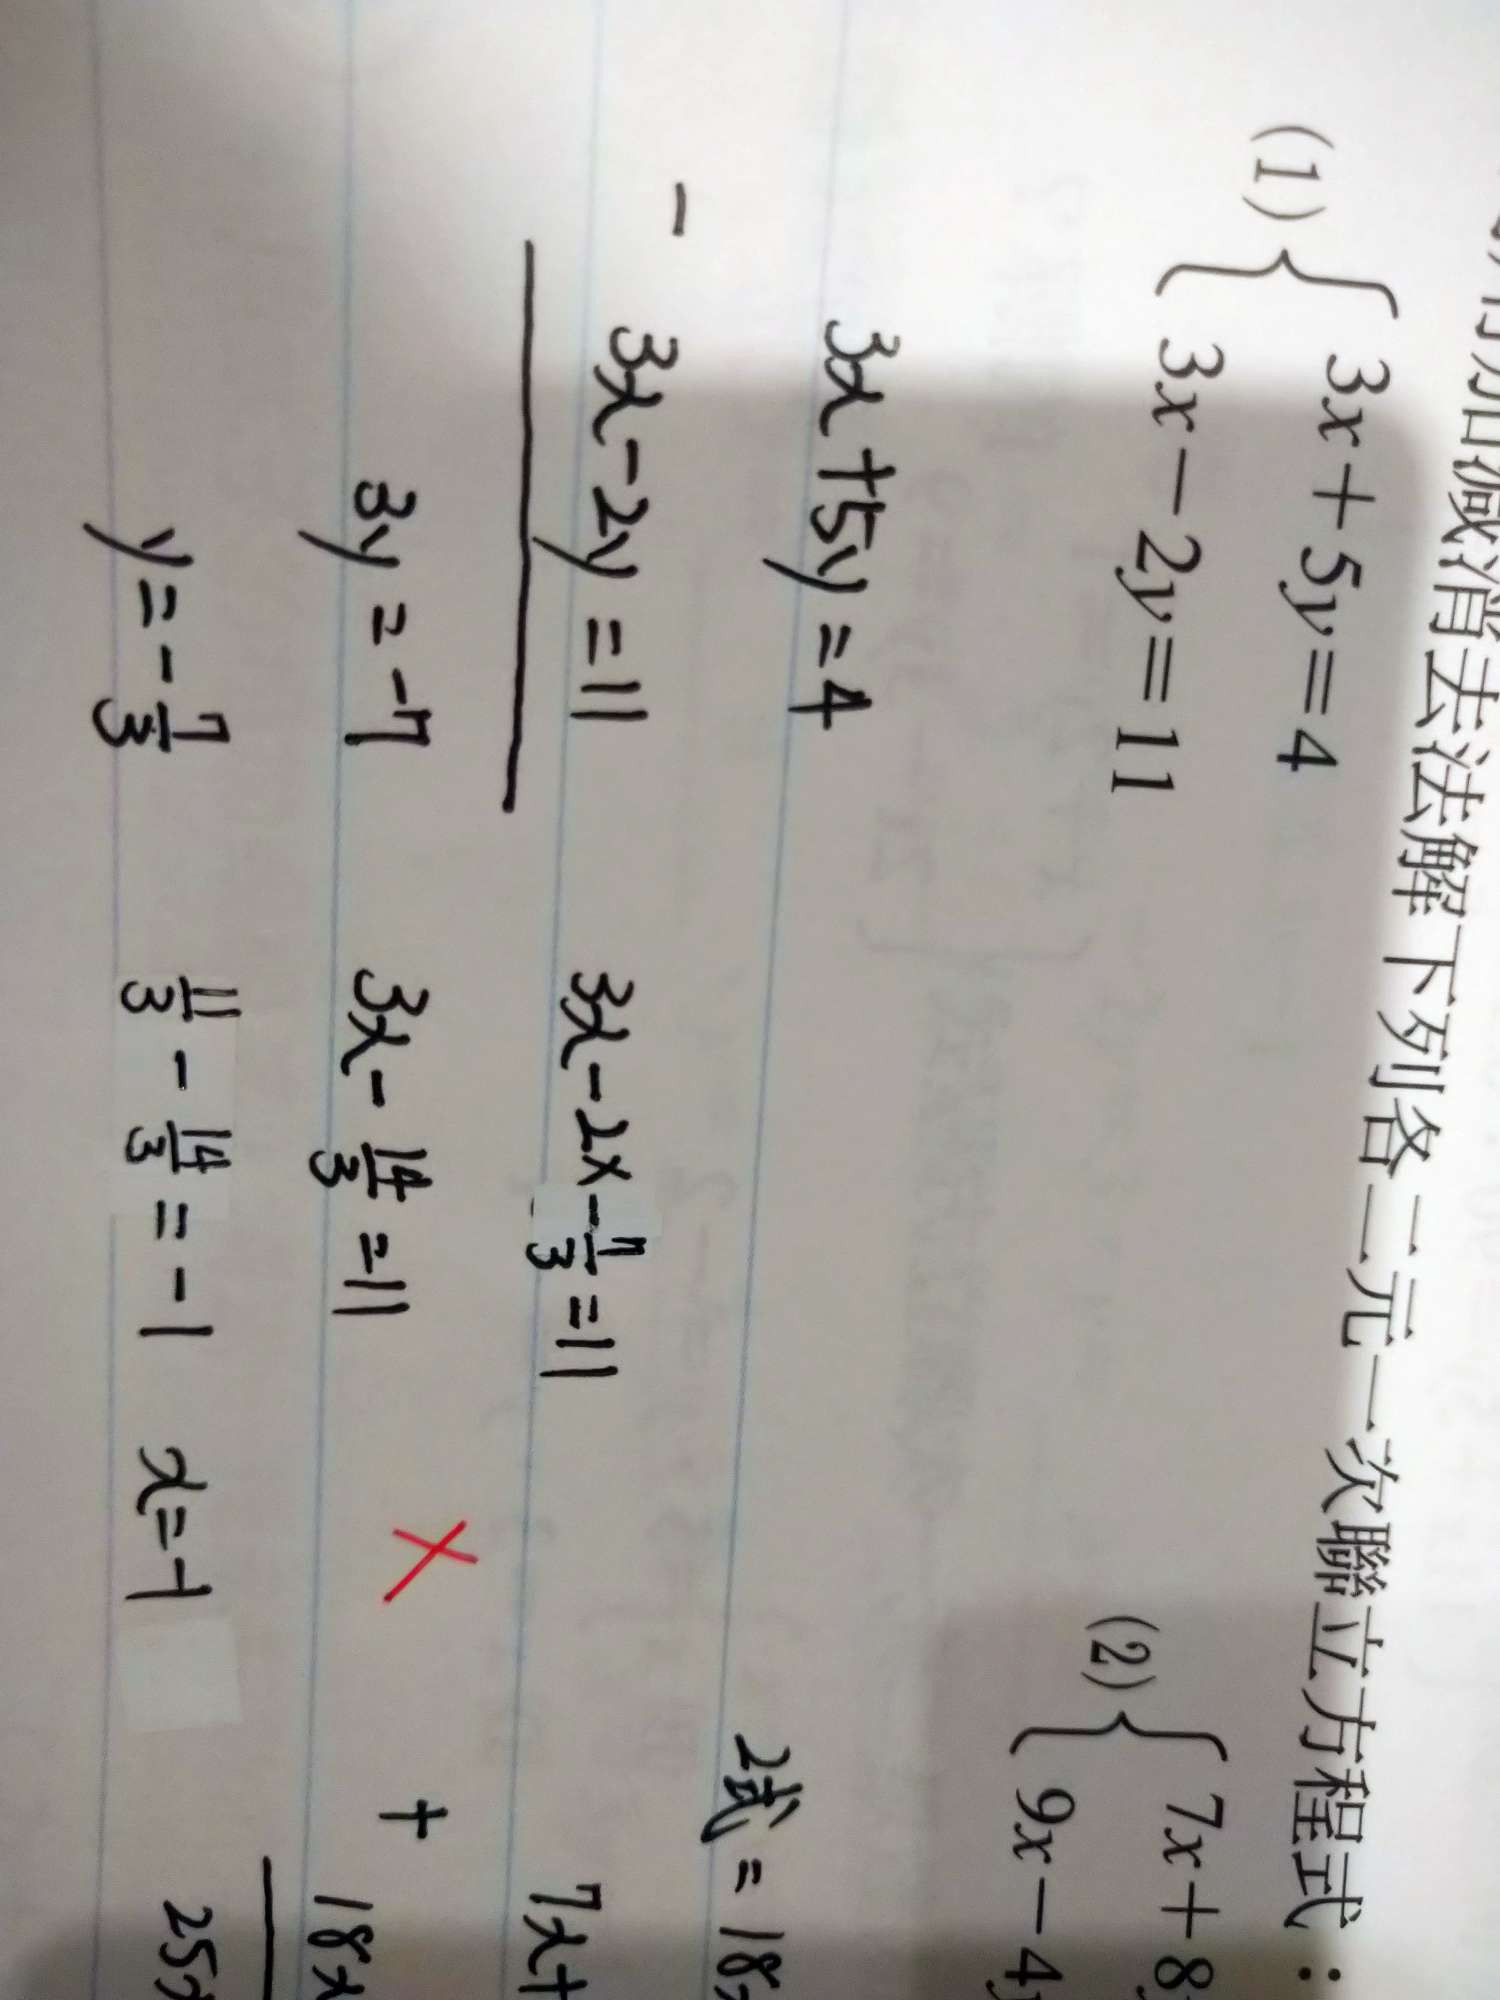 用加減消去法解下列各二元一次聯立方程式：
(1) { 3x + 5y = 4
3x − 2y = 11
(2) { 7x + 8
9x − 4y
3x + 5y = 4
− 3x − 2y = 11
3y = −7
y = − 7/3
3x − 2x − 7/3 = 11
3x − 14/3 = 11
11/3 − 14/3 = −1 x = −1
×
2式 = 18x
7x +
+ 18x
25x